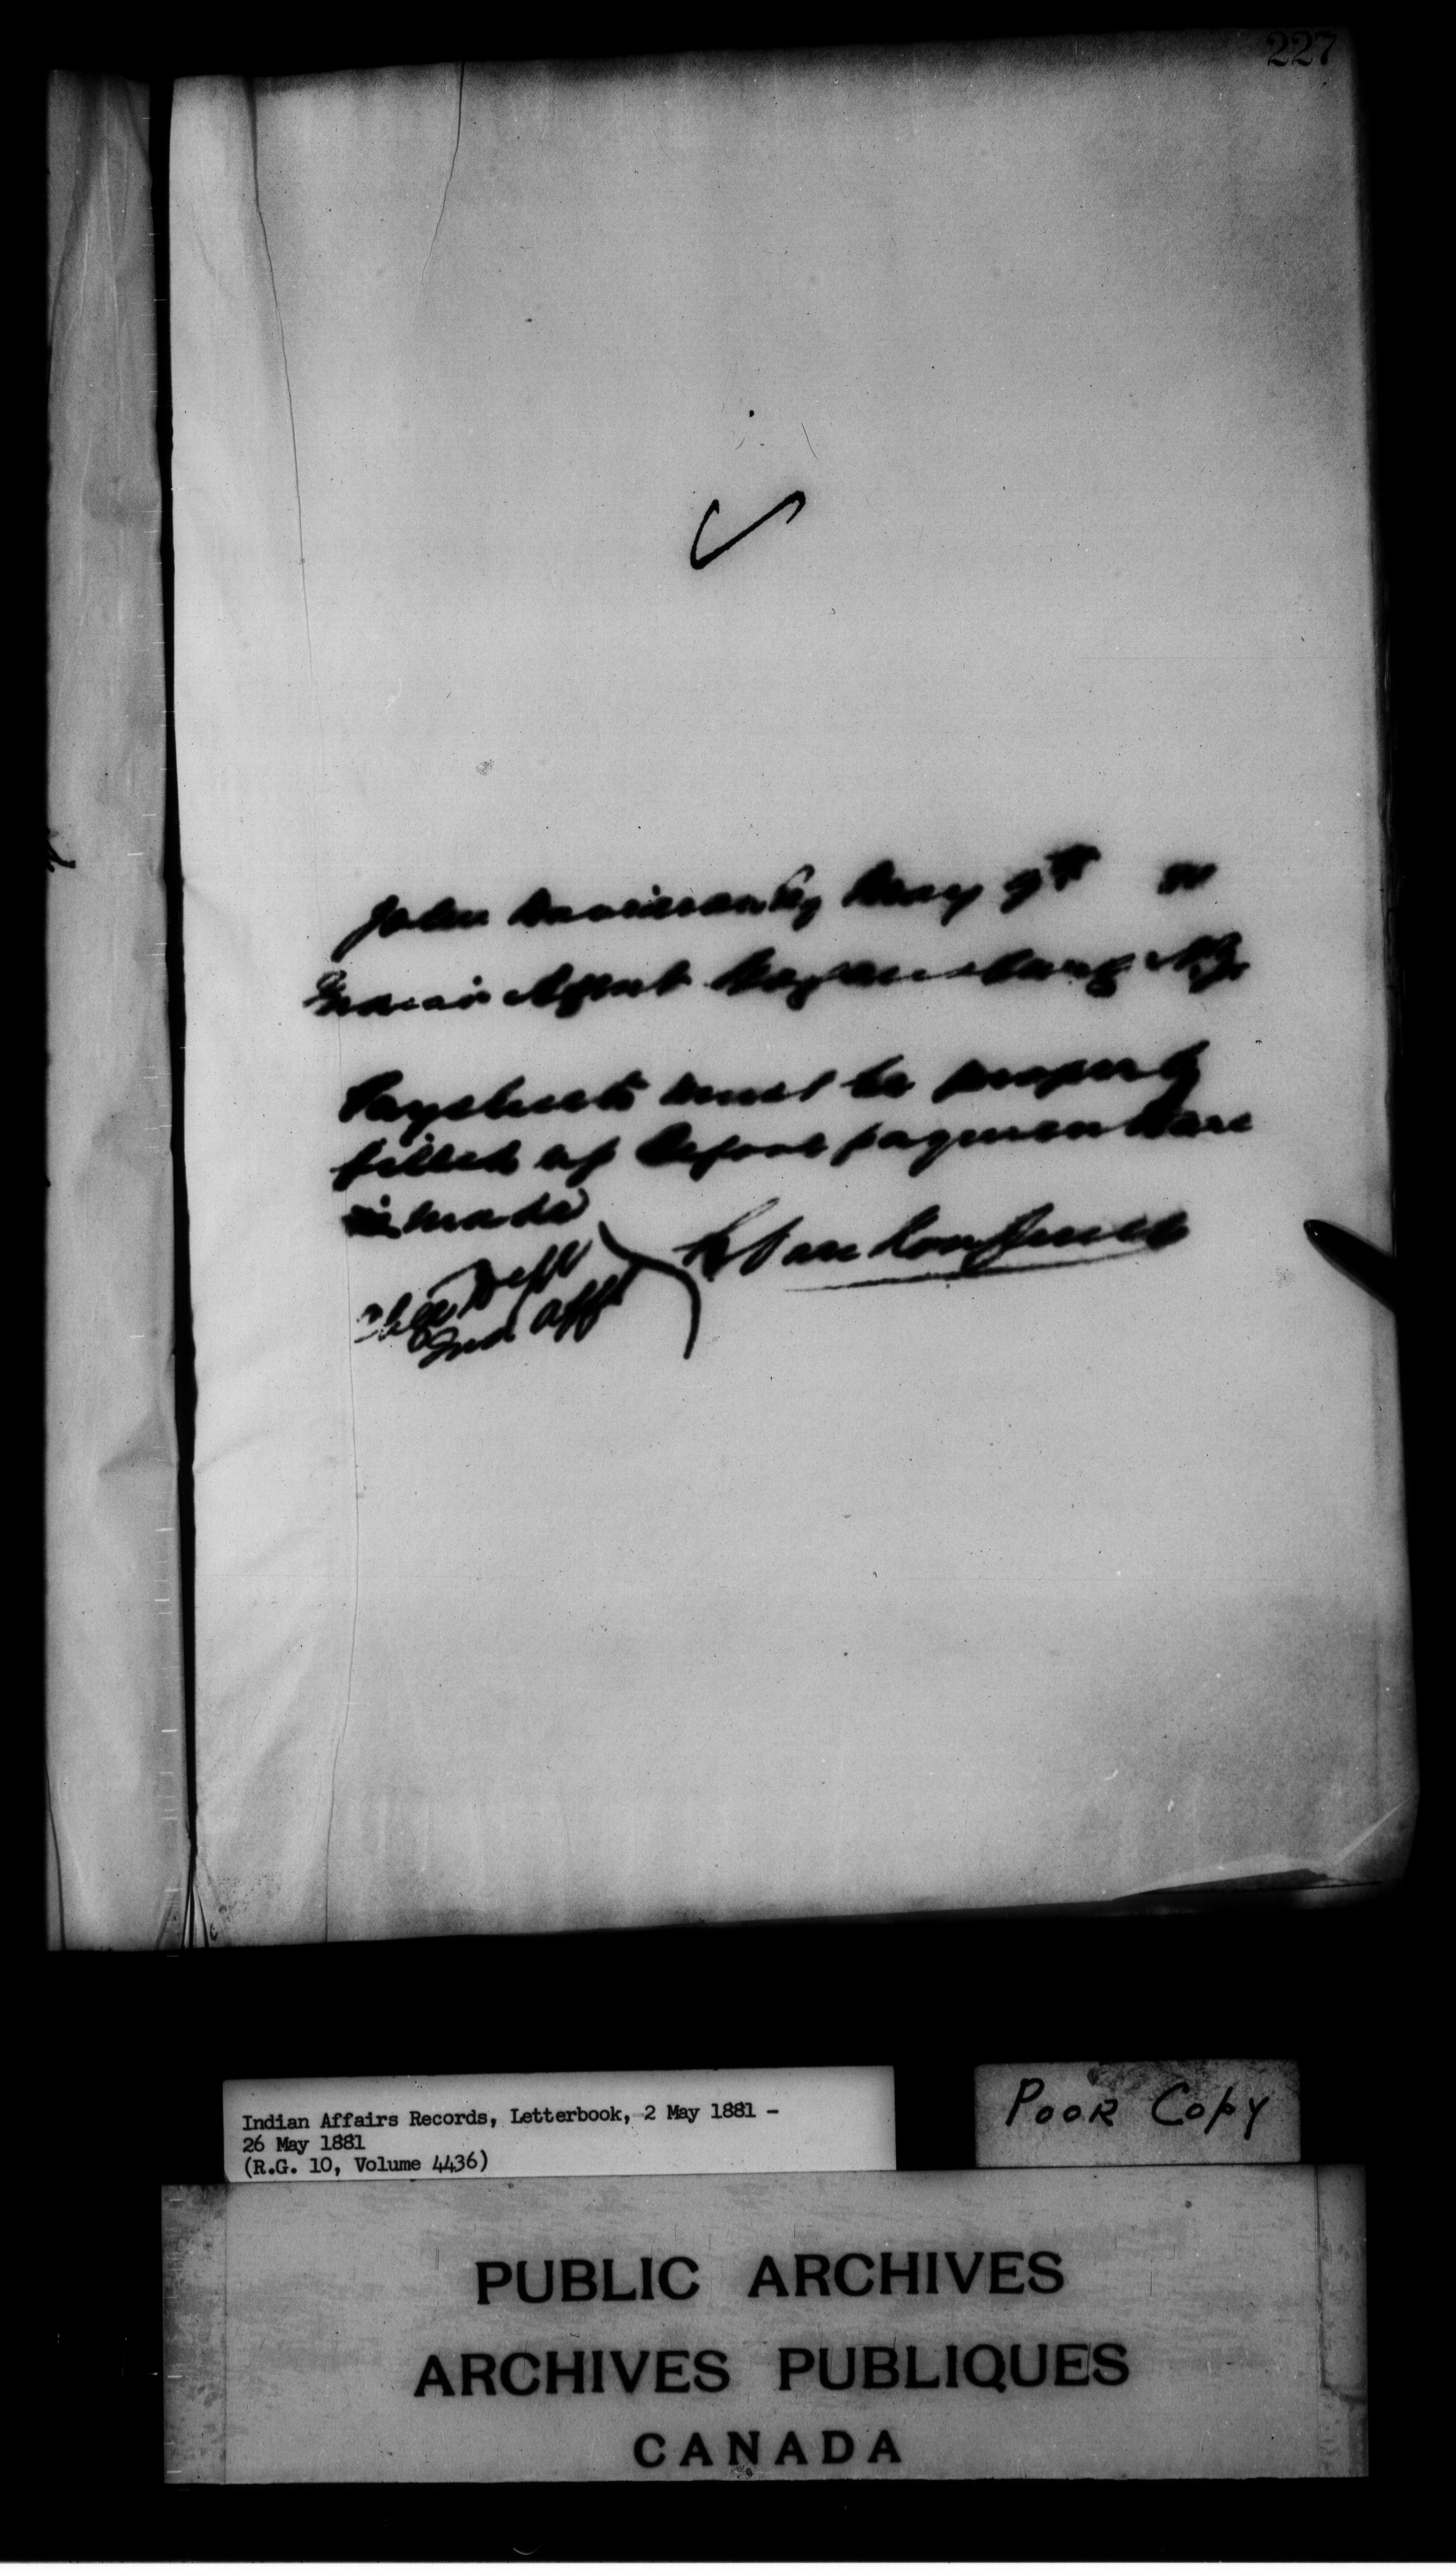 227
John Davidson Esq May 9th 81
Indian Agent Caughnawaga
Paysheets must be properly
filled up before payments are
made
L Vankoughnet
Chge Dept
Ind Aff
Indian Affairs Records, Letterbook, 2 May 1881 -
26 May 1881
(R.G. 10, Volume 4436)
Poor Copy
PUBLIC ARCHIVES
ARCHIVES PUBLIQUES
CANADA